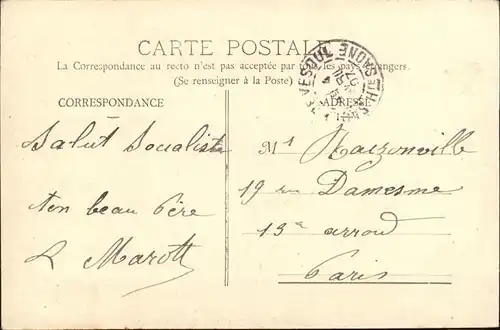 CARTE POSTALE
La Correspondance au recto n'est pas acceptée par tous les pays étrangers.
(Se renseigner à la Poste)
VESOUL
Hte SAONE
CORRESPONDANCE
ADRESSE
Salut Socialiste
ton beau Père
L Marott
Mr Haizonville
19 rue Damesme
13e arrond
Paris